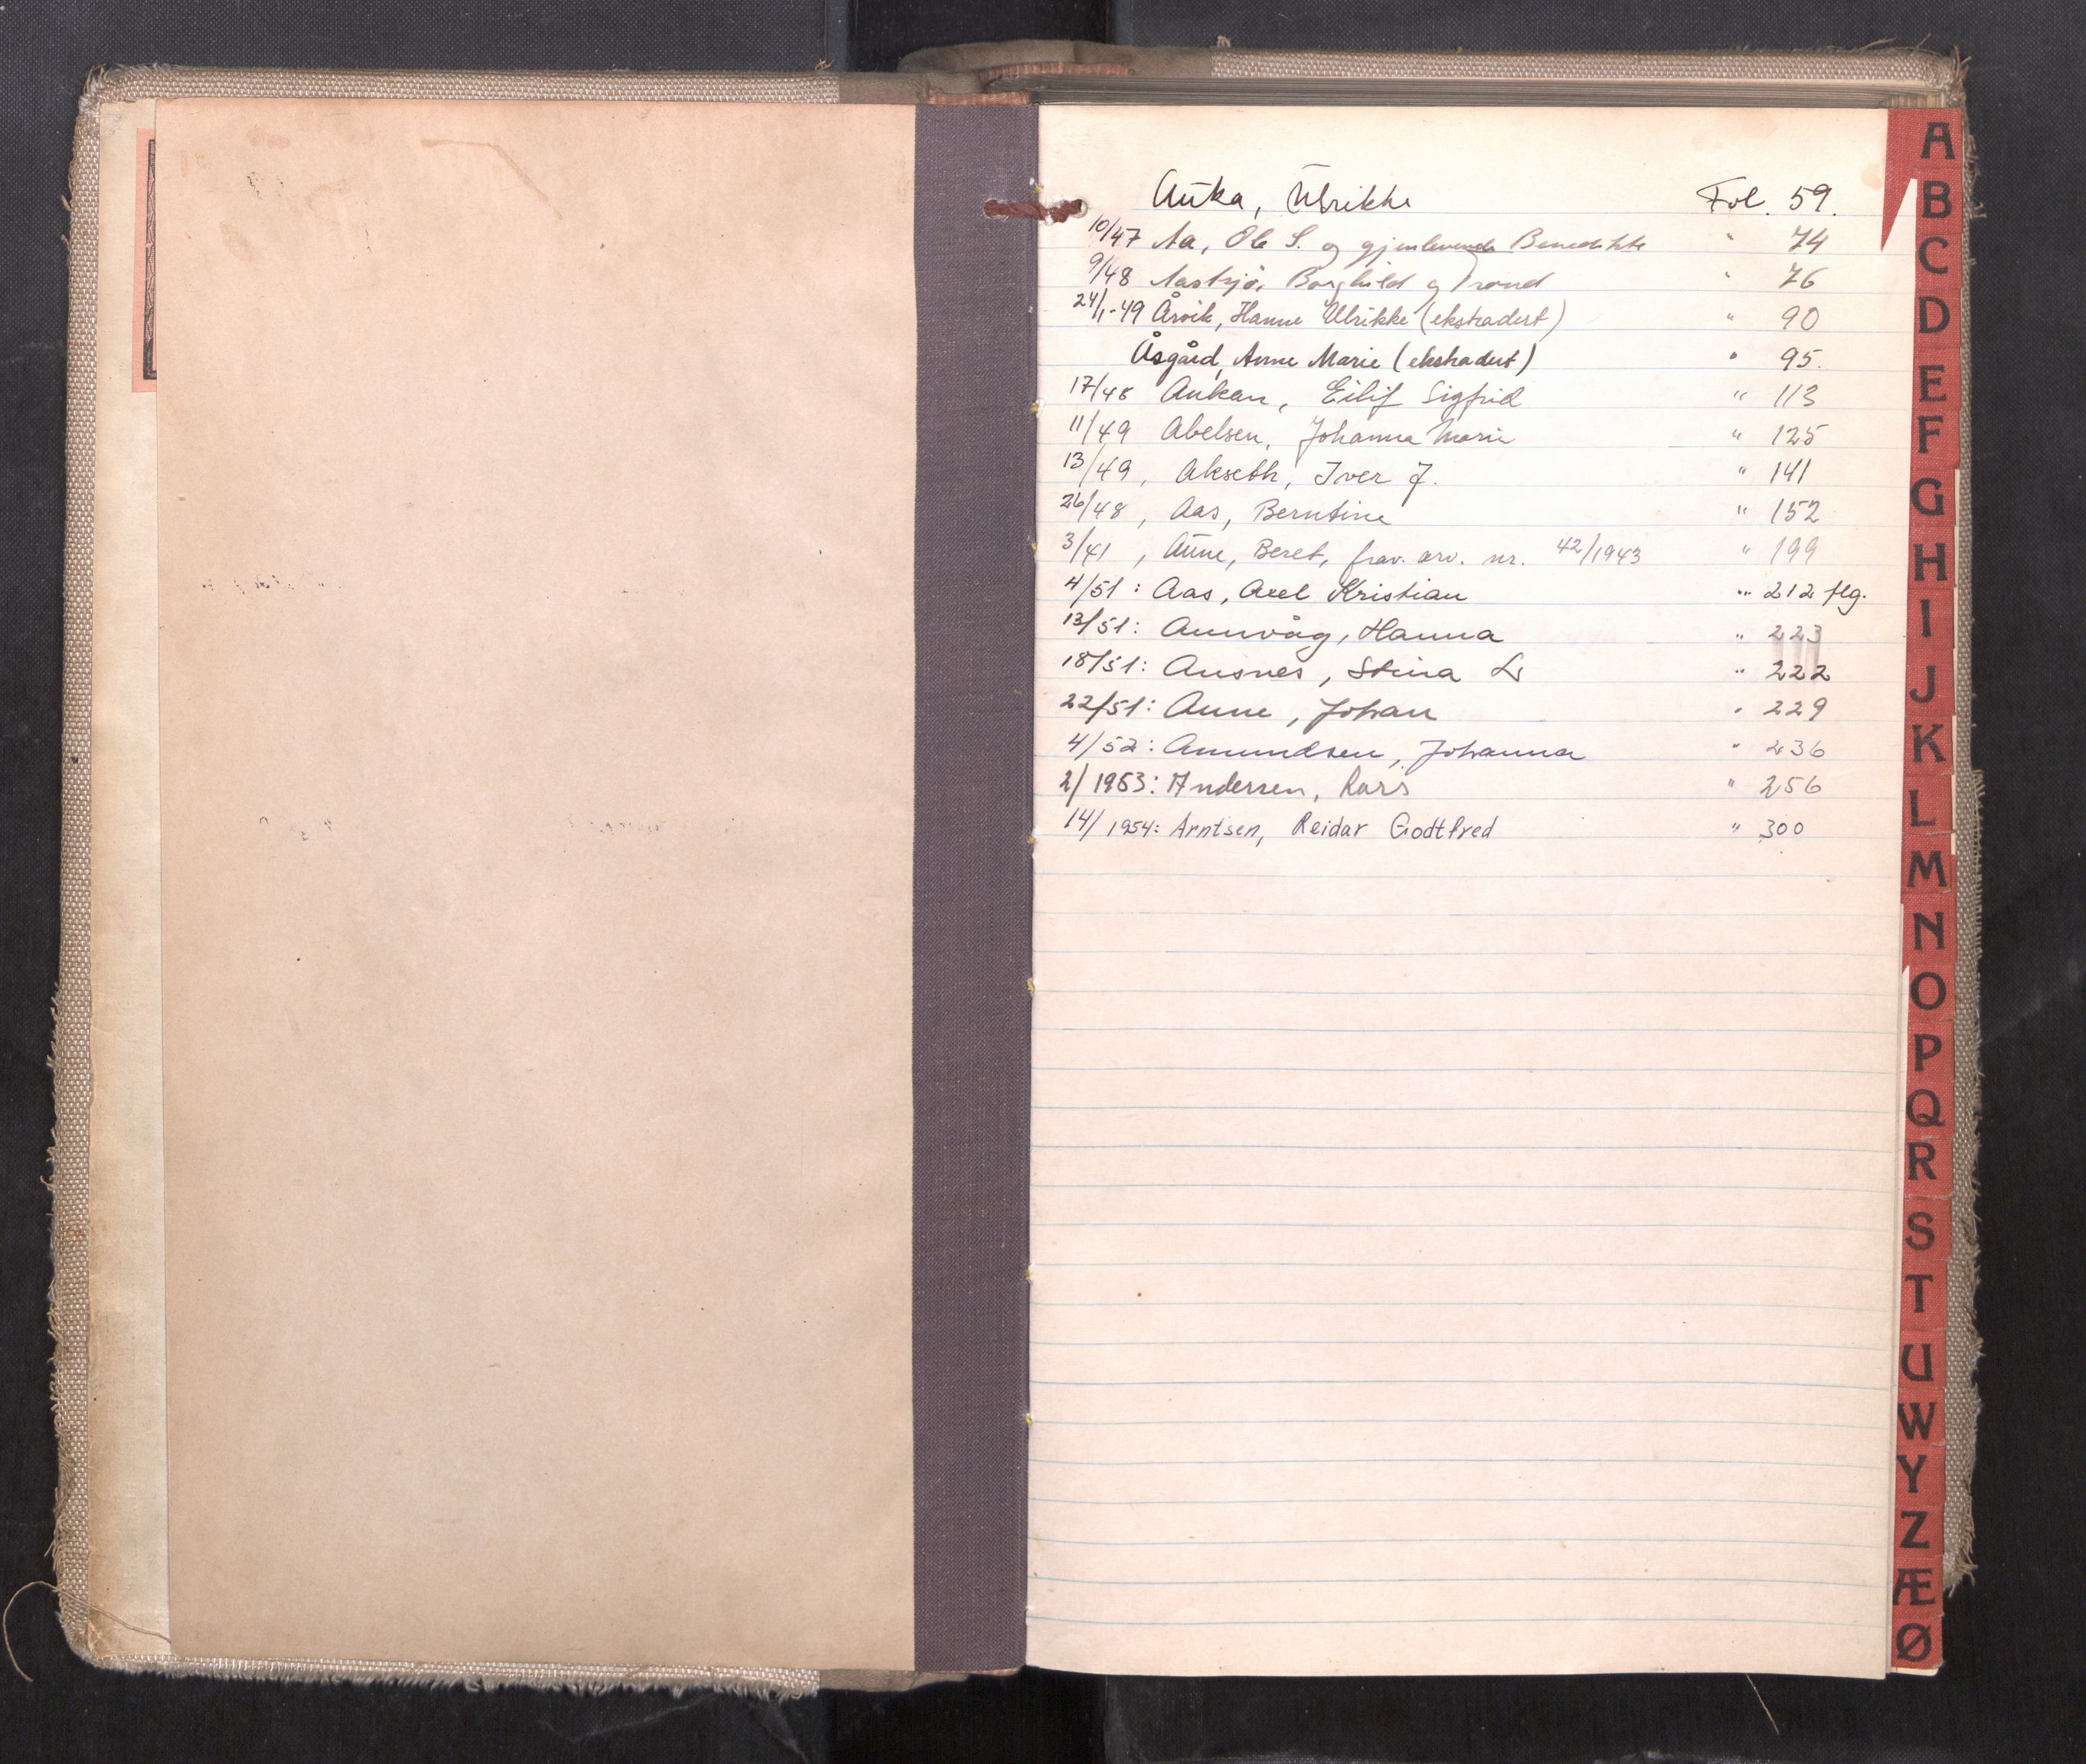 Auka, Ulrikke Fol. 59.
10/47 Aa, Ole S. og gjenlevende Benedikte " 74
9/48 Aastsjö, Borghild og Trond " 76
24/1-49 Årvik, Hanne Ulrikke (ekstradert) " 90
Åsgård, Anne Marie (ekstradert) " 95.
17/48 Aukan, Eilif Sigfrid " 113
11/49 Abelsen, Johanna Marie " 125
13/49, Akseth, Iver J. " 141
26/48, Aas, Berntine " 152
3/41, Aune, Beret, frav. arv. nr. 42/1943 " 199
4/51: Aas, Axel Kristian " 212 flg.
13/51: Aunvåg, Hanna " 223
18/51: Ausnes, Stina L " 222
22/51: Aune, Johan " 229
4/52: Amundsen, Johanna " 236
2/1953: Andersen, Lars " 256
14/1954: Arntsen, Reidar Godtfred " 300
A
B
C
D
E
F
G
H
I
J
K
L
M
N
O
P
Q
R
S
T
U
W
Y
Z
Æ
Ø